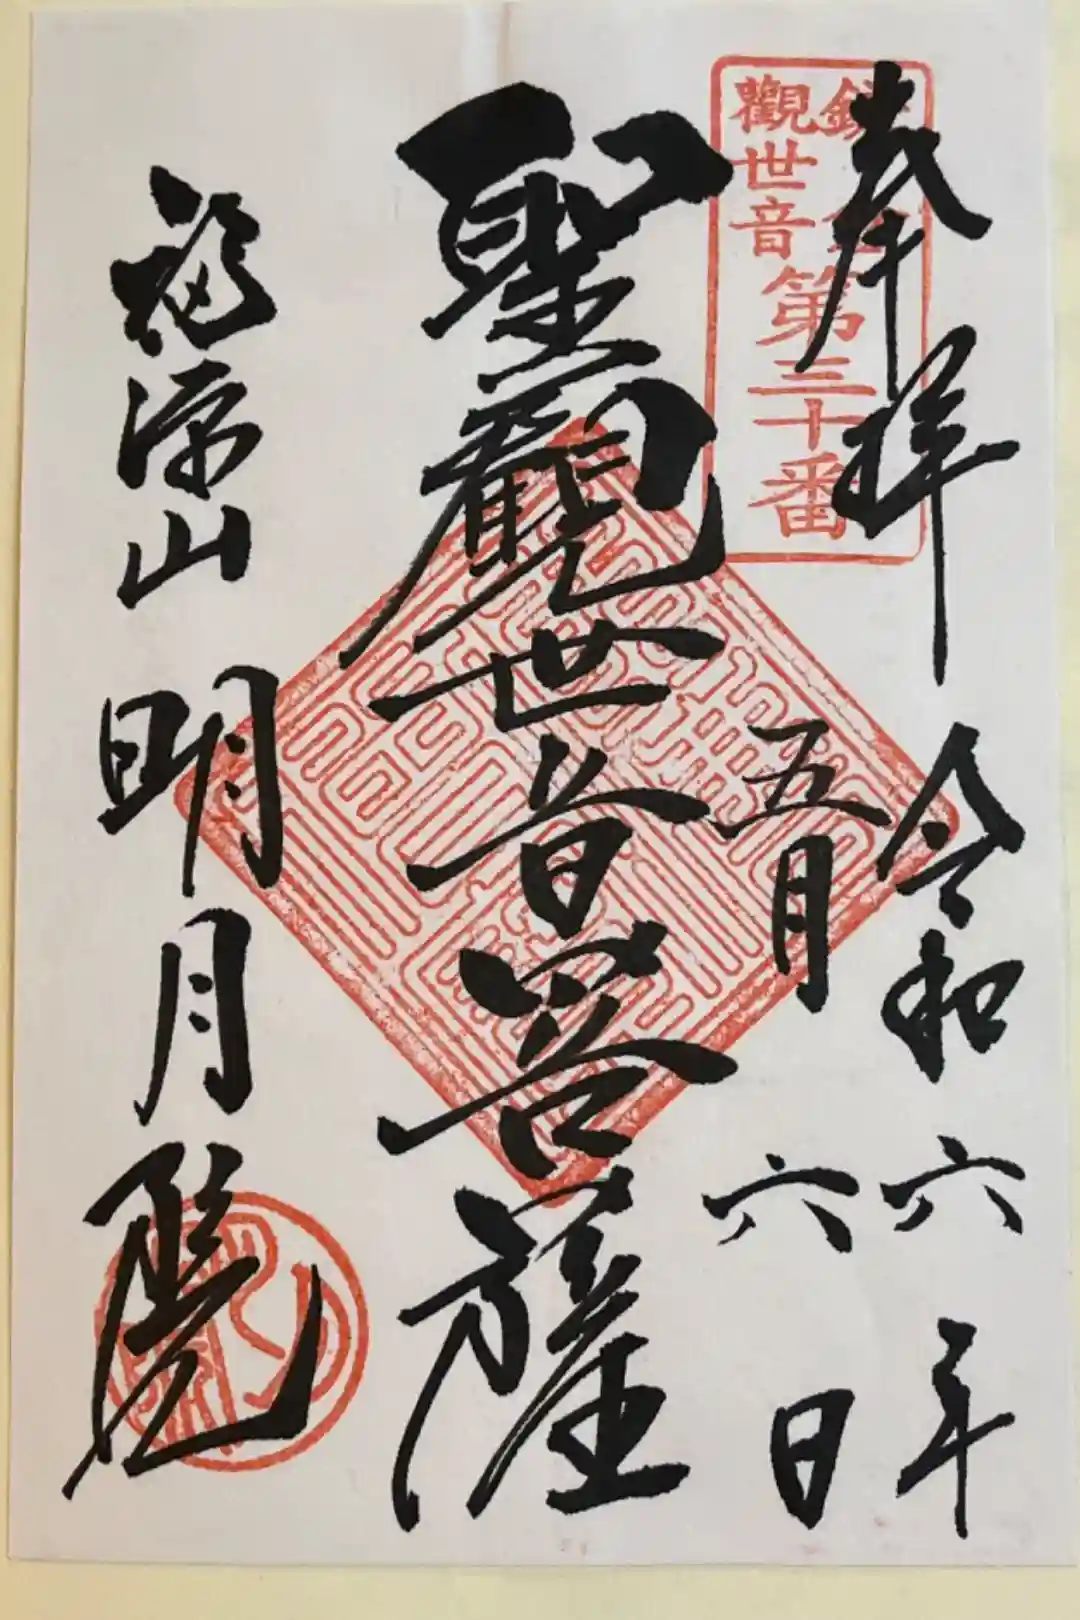 奉拝
令和六年
五月六日
鎌倉
觀世音
第三十番
聖觀世音菩薩
福源山
明月院